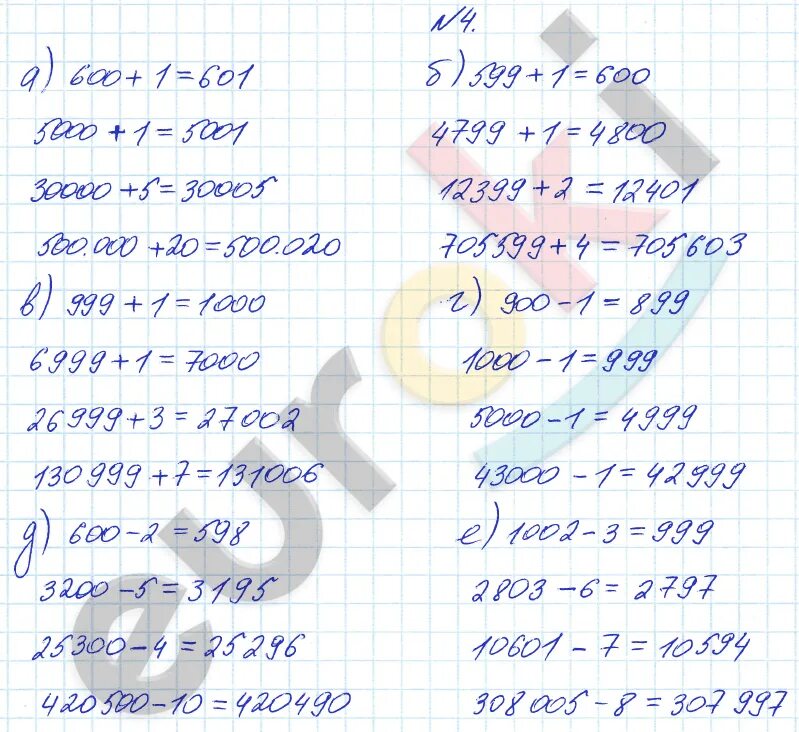 №4.
а) 600 + 1 = 601
5000 + 1 = 5001
30000 + 5 = 30005
500.000 + 20 = 500.020
б) 599 + 1 = 600
4799 + 1 = 4800
12399 + 2 = 12401
705599 + 4 = 705603
в) 999 + 1 = 1000
6999 + 1 = 7000
26999 + 3 = 27002
130999 + 7 = 131006
г) 900 - 1 = 899
1000 - 1 = 999
5000 - 1 = 4999
43000 - 1 = 42999
д) 600 - 2 = 598
3200 - 5 = 3195
25300 - 4 = 25296
420500 - 10 = 420490
е) 1002 - 3 = 999
2803 - 6 = 2797
10601 - 7 = 10594
308005 - 8 = 307997
euroki